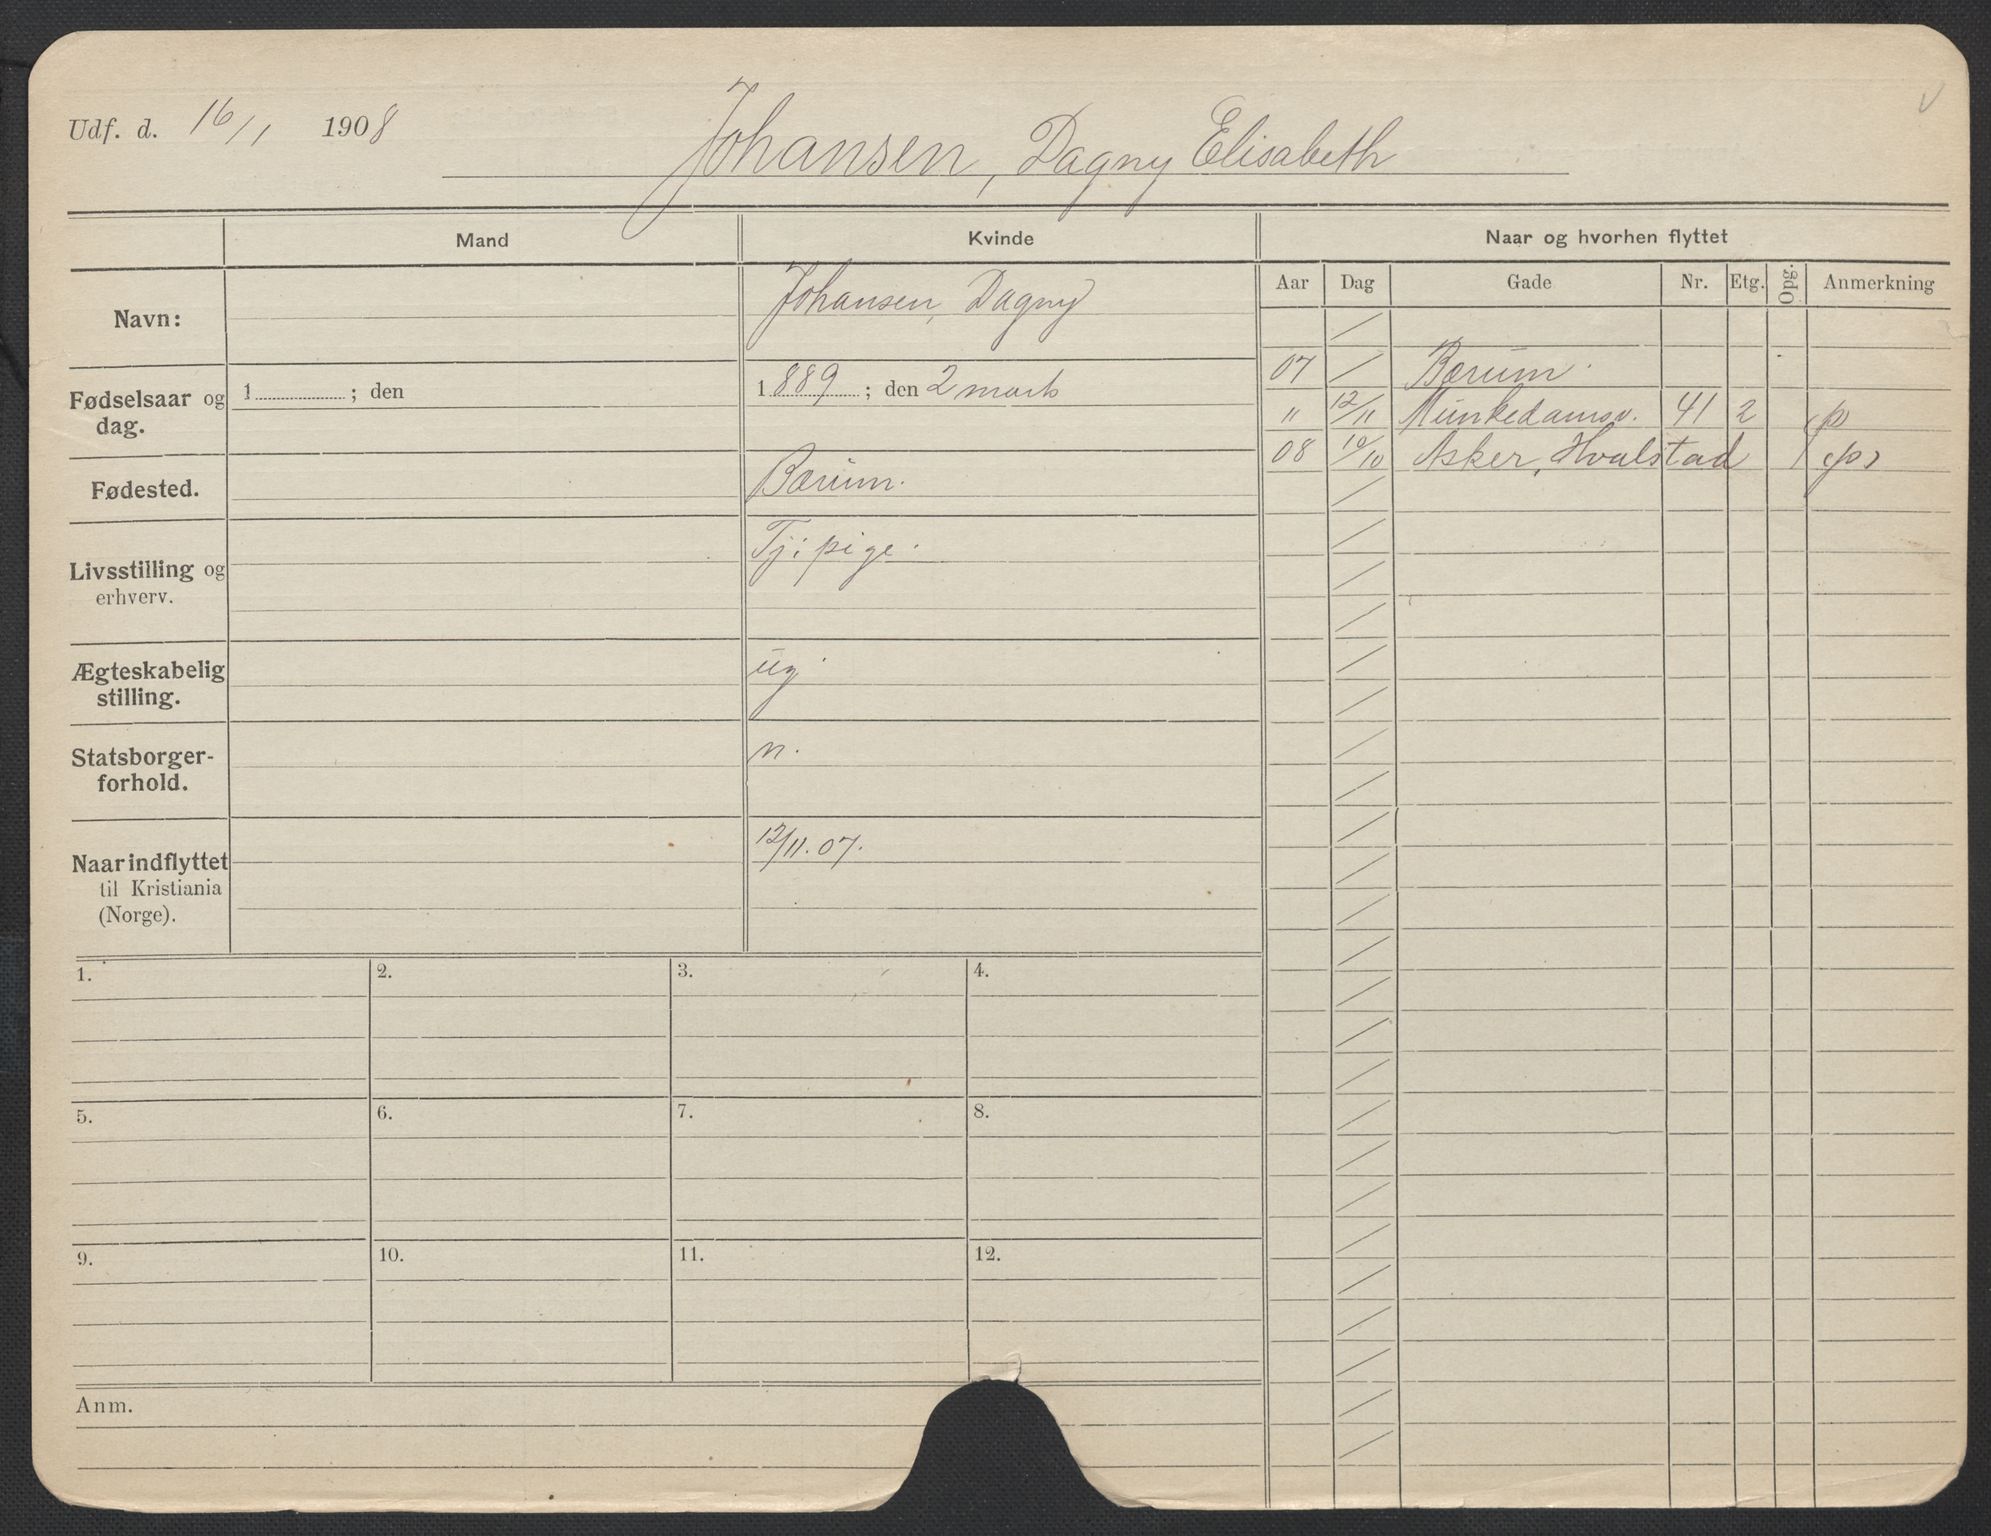 Udf. d. 16/1 1908
Johansen, Dagny Elisabeth
Mand Kvinde Naar og hvorhen flyttet
Aar Dag Gade Nr. Etg. Opg. Anmerkning
Navn: Johansen, Dagny
Fødselsaar og dag. 1 ; den 1889 ; den 2 marts
Fødested. Bærum.
Livsstilling og erhverv. Tj: pige.
Ægteskabelig stilling. ug.
Statsborgerforhold. n.
Naar indflyttet til Kristiania (Norge). 12/11.07.
07 / Bærum.
" 12/11 Munkedamsv. 41 2 p
08 10/10 Asker, Hvalstad (p)
1. 2. 3. 4.
5. 6. 7. 8.
9. 10. 11. 12.
Anm.